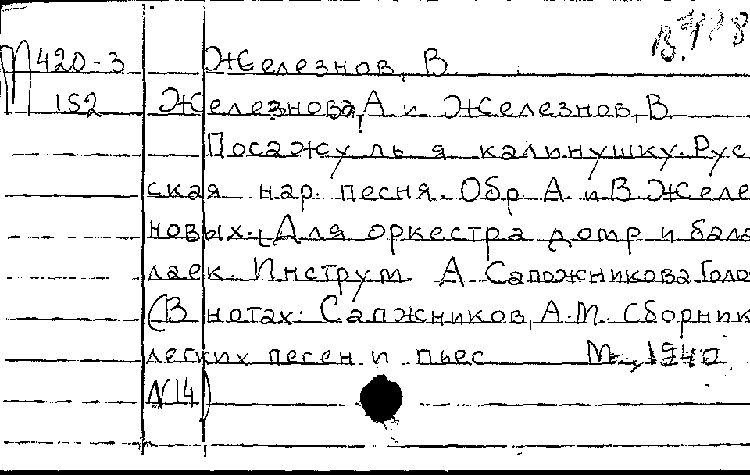 М 420-3 Железнов, В.
152 Железнова, А и Железнов, В.
Посажу ль я калинушку. Рус-
ская нар. песня. Обр. А. и В. Желе
новых. [Для оркестра домр и бала
лаек. Инструм. А. Сапожникова. Голо
(В нотах: Сапжников, А.М. Сборник
легких песен и пьес М., 1940
N14)